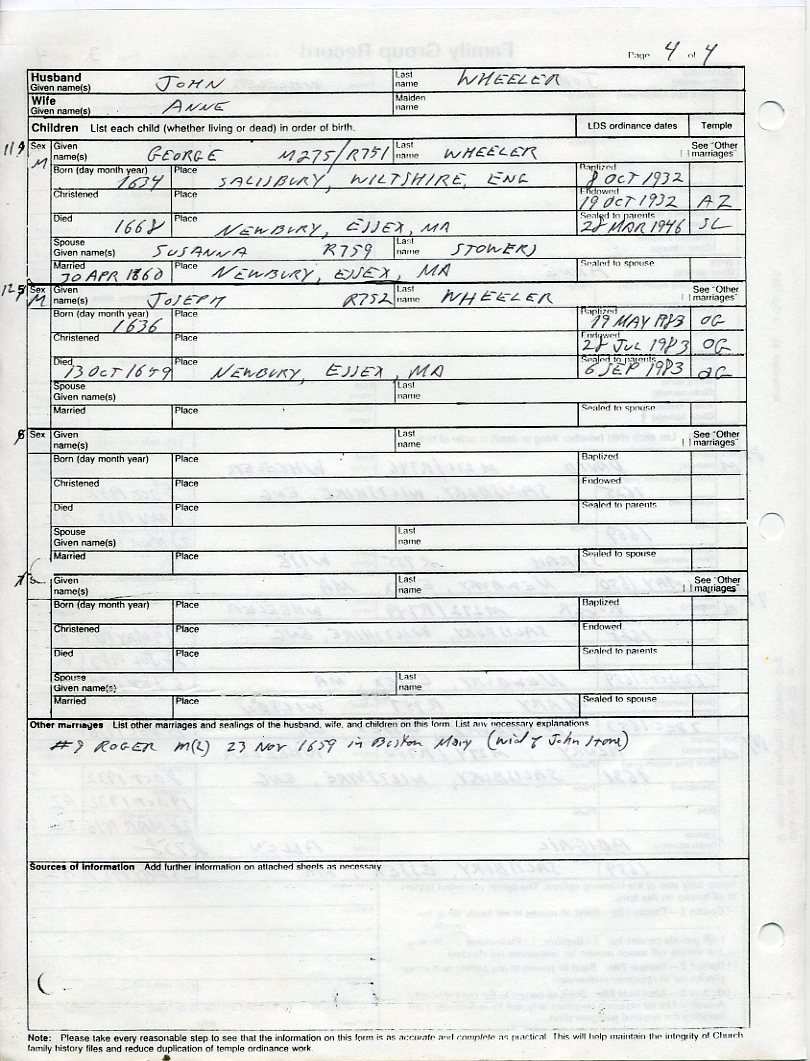 Page 4 of 4
Husband Given name(s) JOHN Last name WHEELER
Wife Given name(s) ANNE Maiden name
Children List each child (whether living or dead) in order of birth. LDS ordinance dates Temple
11 Sex M Given name(s) GEORGE M275/R751 Last name WHEELER See "Other marriages"
Born (day month year) 1634 Place SALISBURY, WILTSHIRE, ENG Baptized 8 OCT 1932
Christened Place Endowed 19 OCT 1932 AZ
Died 1668 Place NEWBURY, ESSEX, MA Sealed to parents 28 MAR 1946 SL
Spouse Given name(s) SUSANNA R759 Last name STOWERS
Married 30 APR 1860 Place NEWBURY, ESSEX, MA Sealed to spouse
12 Sex M Given name(s) JOSEPH R752 Last name WHEELER See "Other marriages"
Born (day month year) 1636 Place Baptized 19 MAY 1983 OG
Christened Place Endowed 28 JUL 1983 OG
Died 13 OCT 1659 Place NEWBURY, ESSEX, MA Sealed to parents 6 SEP 1983 OG
Spouse Given name(s) Last name
Married Place Sealed to spouse
Sex Given name(s) Last name See "Other marriages"
Born (day month year) Place Baptized
Christened Place Endowed
Died Place Sealed to parents
Spouse Given name(s) Last name
Married Place Sealed to spouse
Given name(s) Last name See "Other marriages"
Born (day month year) Place Baptized
Christened Place Endowed
Died Place Sealed to parents
Spouse Given name(s) Last name
Married Place Sealed to spouse
Other marriages List other marriages and sealings of the husband, wife, and children on this form. List any necessary explanations
#9 ROGER m(2) 23 Nov 1659 in Boston Mary (wid of John Stone)
Sources of Information Add further information on attached sheets as necessary
Note: Please take every reasonable step to see that the information on this form is as accurate and complete as practical. This will help maintain the integrity of Church
family history files and reduce duplication of temple ordinance work.